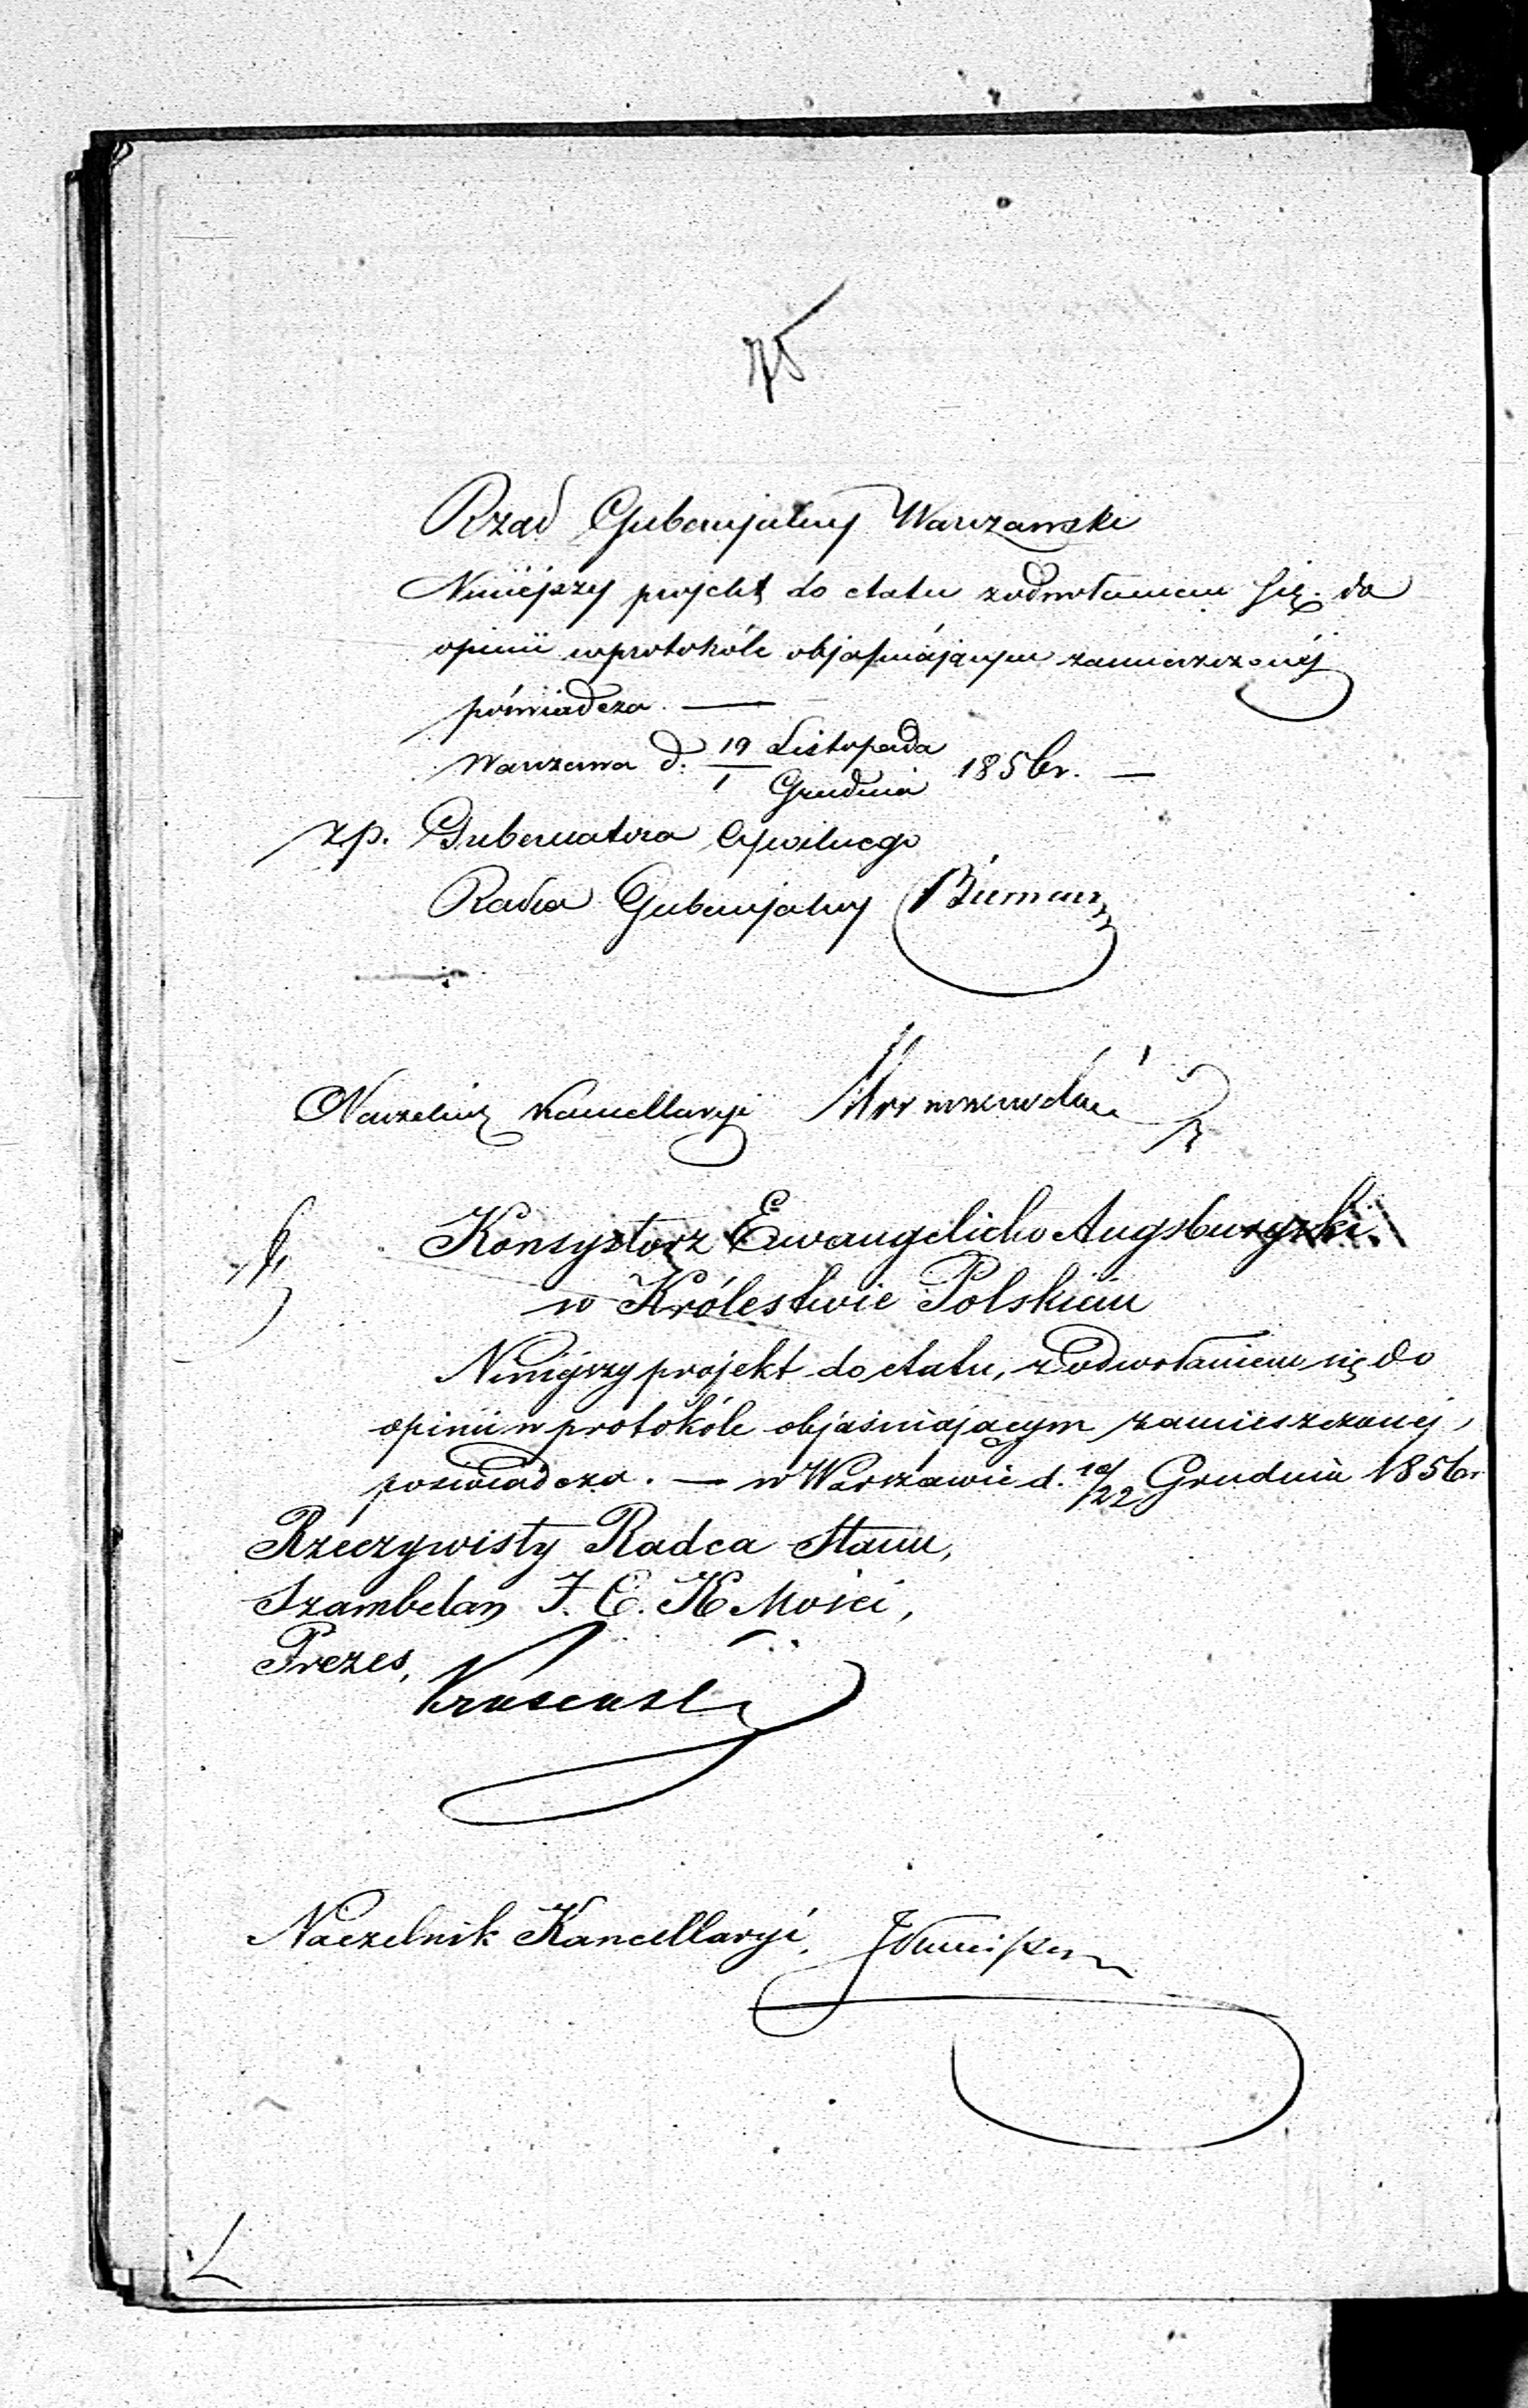 75
Rząd Gubernjalny Warszawski
Niniéjszy projekt do etatu z odwołaniem się do
opinii w protokóle objaśniającym zamieszczonéj
póświadcza. —
Warszawa d. 19 Listopada / 1 Grudnia 1856 r. —
zp. Gubernatora Cywilnego
Radca Gubernjalny
Naczelnik Kancellaryi
Konsystorz Ewangelicko Augsburgski
w Królestwie Polskiem
Niniejszy projekt do etatu, z odwołaniem się do
opinii w protokóle objaśniającym zamieszczonej,
poświadcza. — w Warszawie d. 10/22 Grudnia 1856 r
Rzeczywisty Radca Stanu,
Szambelan J. C. K Mości,
Prezes,
Naczelnik Kancellaryi,